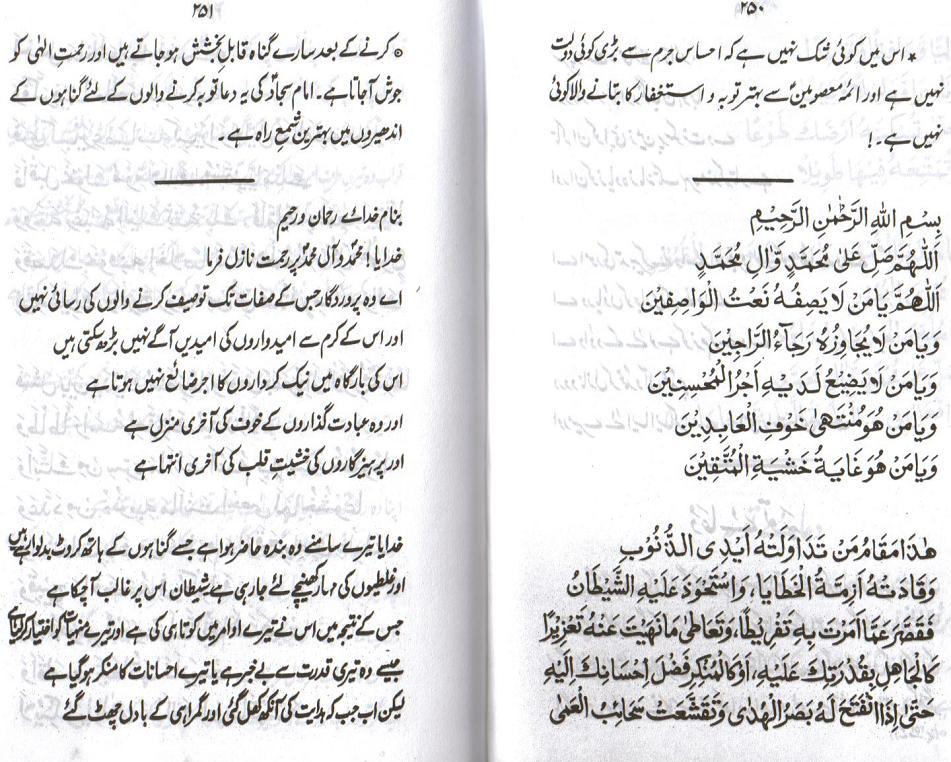 ۲۵۰
* اس میں کوئی شک نہیں ہے کہ احساس جرم سے بڑی کوئی دولت
نہیں ہے اور ائمہ معصومینؑ سے بہتر توبہ و استغفار کا بتانے والا کوئی
نہیں ہے۔!
بِسْمِ اللهِ الرَّحْمٰنِ الرَّحِيْمِ
اَللّٰهُمَّ صَلِّ عَلىٰ مُحَمَّدٍ وَّاٰلِ مُحَمَّدٍ
اَللّٰهُمَّ يَامَنْ لَا يَصِفُهُ نَعْتُ الْوَاصِفِيْنَ
وَيَامَنْ لَا يُجَاوِزُهُ رَجَآءُ الرَّاجِيْنَ
وَيَامَنْ لَا يَضِيْعُ لَدَيْهِ اَجْرُ الْمُحْسِنِيْنَ
وَيَامَنْ هُوَ مُنْتَهىٰ خَوْفِ الْعَابِدِيْنَ
وَيَامَنْ هُوَ غَايَةُ خَشْيَةِ الْمُتَّقِيْنَ
هٰذَا مَقَامُ مَنْ تَدَاوَلَتْهُ اَيْدِى الذُّنُوْبِ
وَقَادَتْهُ اَزِمَّةُ الْخَطَايَا، وَاسْتَحْوَذَ عَلَيْهِ الشَّيْطَانُ
فَقَصَّرَ عَمَّا اَمَرْتَ بِهِ تَفْرِيْطًا، وَتَعَاطىٰ مَا نَهَيْتَ عَنْهُ تَعْزِيْرًا
كَالْجَاهِلِ بِقُدْرَتِكَ عَلَيْهِ، اَوْ كَالْمُنْكِرِ فَضْلَ اِحْسَانِكَ اِلَيْهِ
حَتىّٰ اِذَا انْفَتَحَ لَهُ بَصَرُ الْهُدٰى وَتَقَشَّعَتْ سَحَائِبُ الْعَمٰى
۲۵۱
۞ کرنے کے بعد سارے گناہ قابلِ بخشش ہو جاتے ہیں اور رحمتِ الٰہی کو
جوش آجاتا ہے۔ امام سجادؑ کی یہ دعا توبہ کرنے والوں کے لئے گناہوں کے
اندھیروں میں بہترین شمعِ راہ ہے۔
بنام خدائے رحمان و رحیم
خدایا! محمدؐ و آل محمدؐ پر رحمت نازل فرما
اے وہ پروردگار جس کے صفات تک توصیف کرنے والوں کی رسائی نہیں
اور اس کے کرم سے امیدواروں کی امیدیں آگے نہیں بڑھ سکتی ہیں
اس کی بارگاہ میں نیک کرداروں کا اجر ضائع نہیں ہوتا ہے
اور وہ عبادت گذاروں کے خوف کی آخری منزل ہے
اور پرہیزگاروں کی خشیتِ قلب کی آخری انتہا ہے
خدایا تیرے سامنے وہ بندہ حاضر ہوا ہے جسے گناہوں کے ہاتھ کروٹ بدلوا رہے ہیں
اور غلطیوں کی مہار کھینچے لئے جا رہی ہے شیطان اس پر غالب آچکا ہے
جس کے نتیجہ میں اس نے تیرے اوامر میں کوتاہی کی ہے اور تیرے منہیات کو اختیار کر لیا ہے
جیسے وہ تیری قدرت سے بے خبر ہے یا تیرے احسانات کا منکر ہو گیا ہے
لیکن اب جب کہ ہدایت کی آنکھ کھل گئی اور گمراہی کے بادل چھٹ گئے